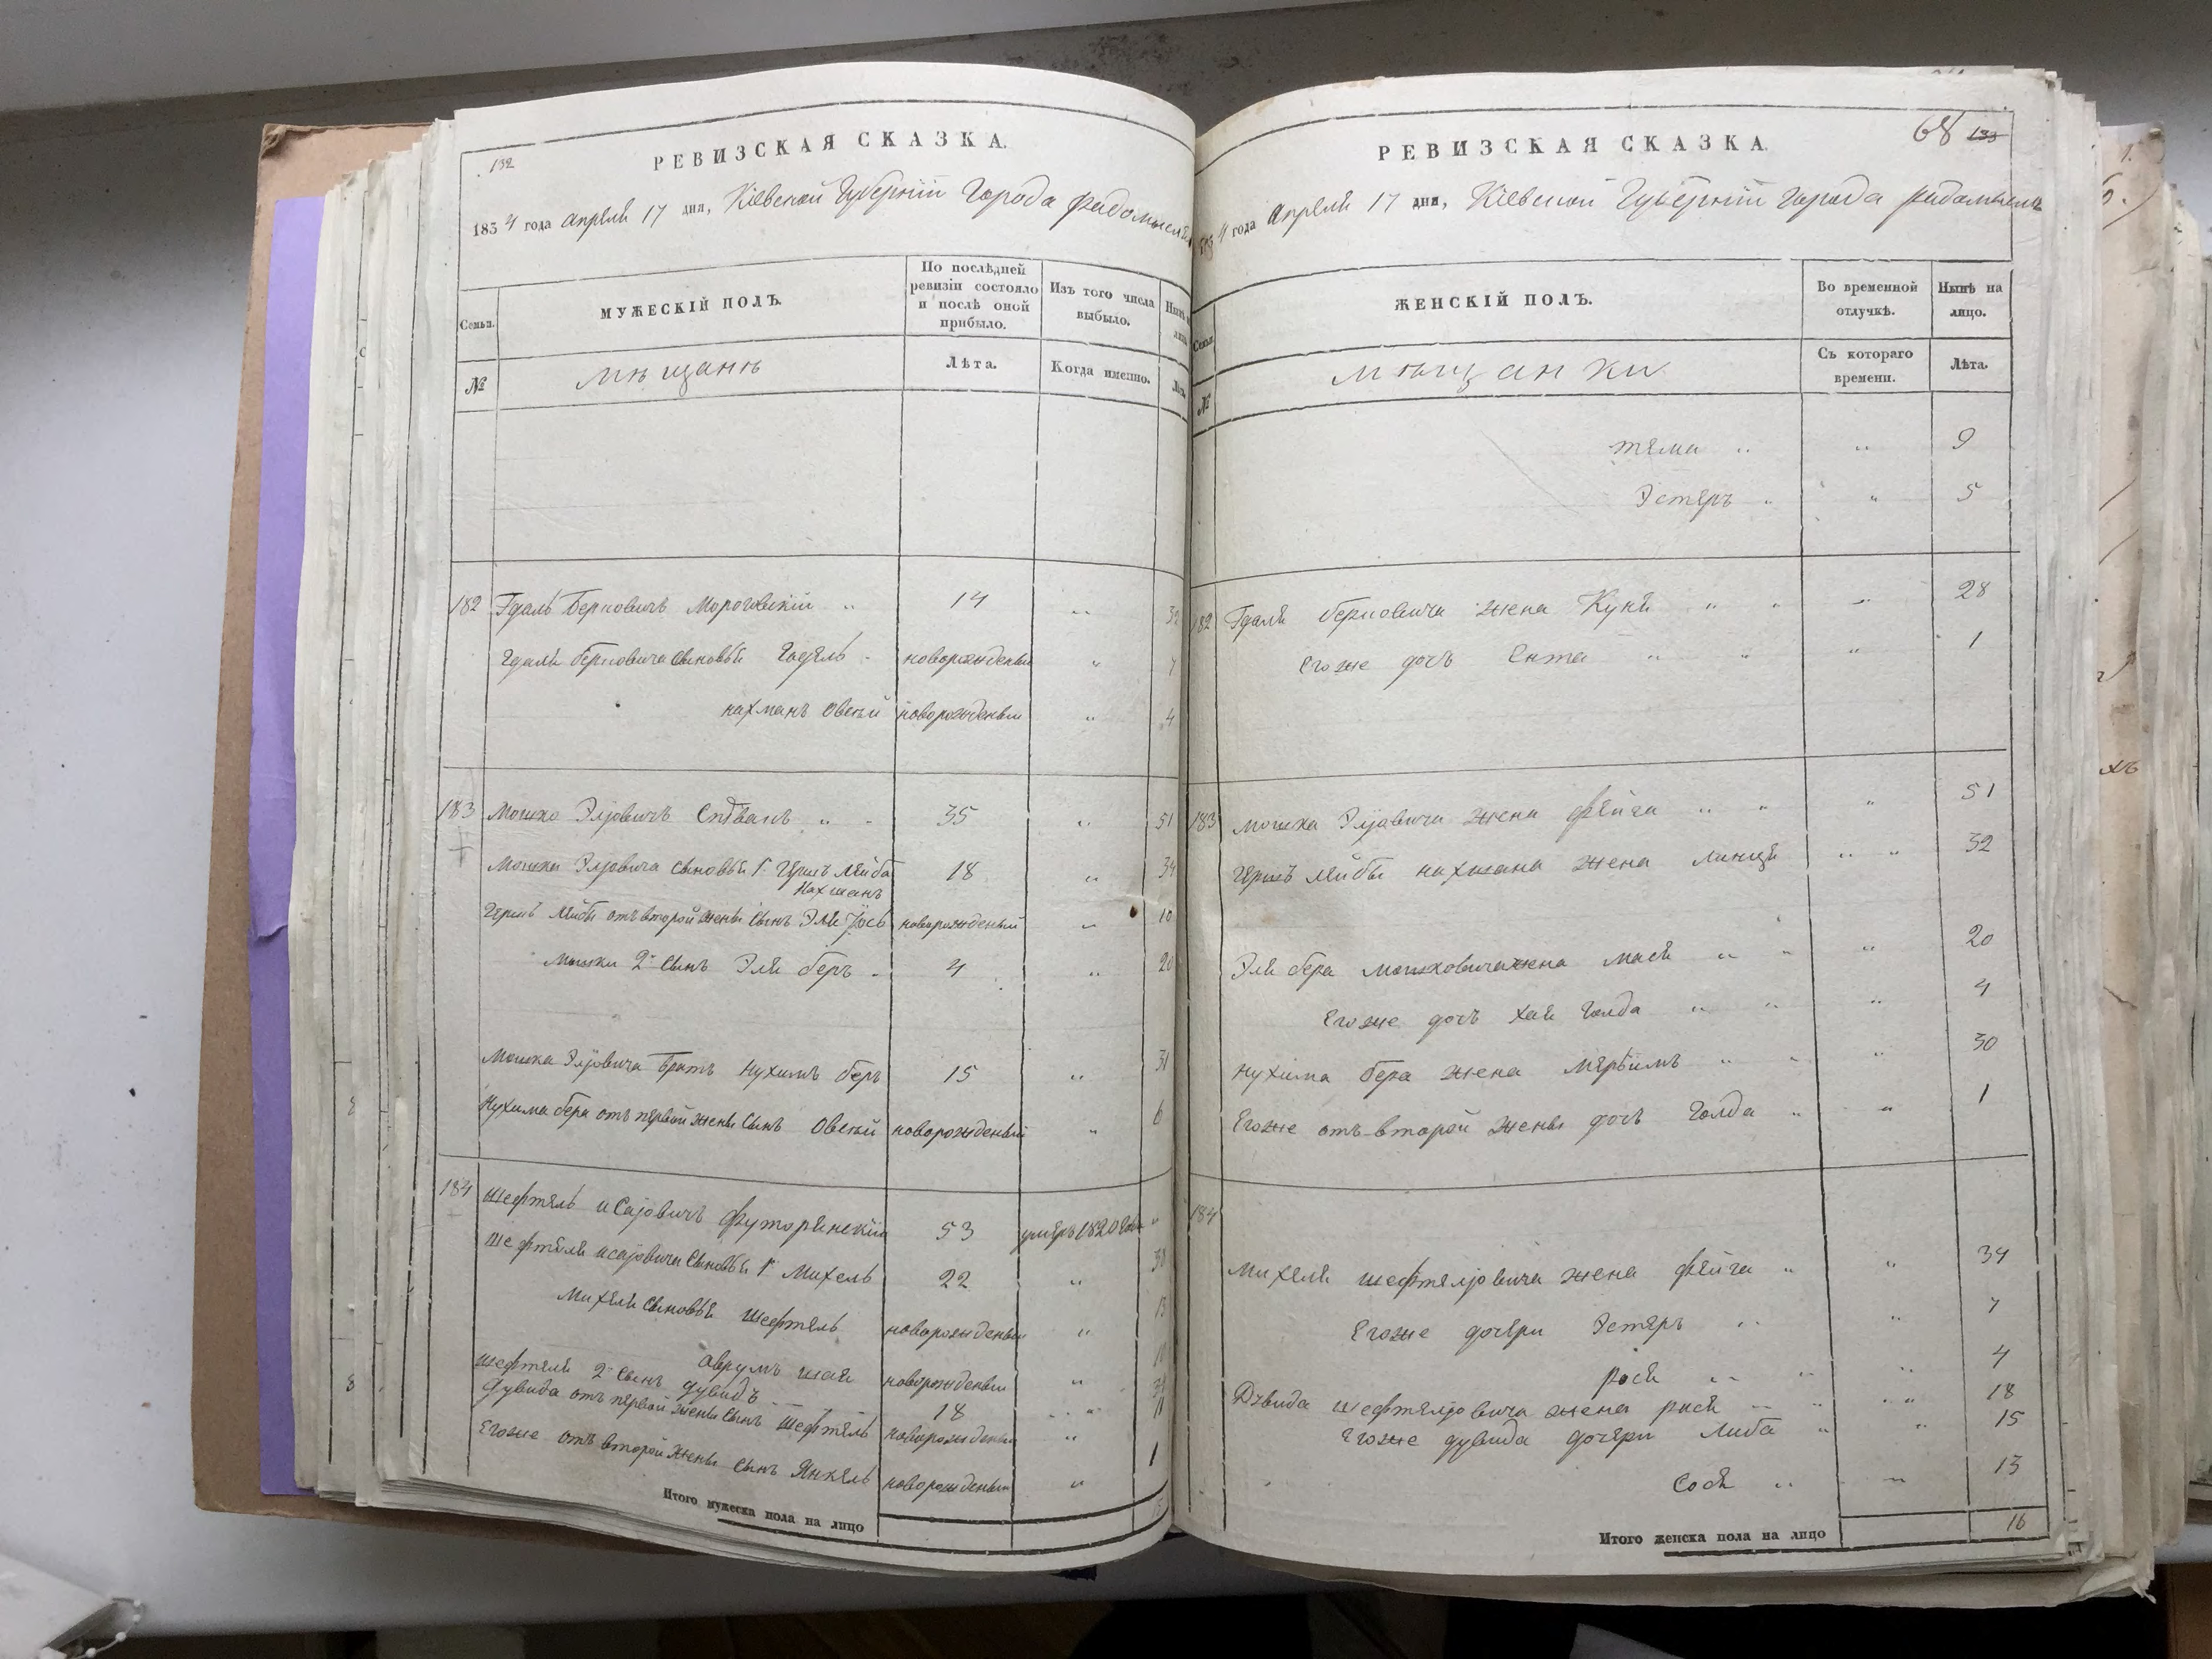 132
РЕВИЗСКАЯ СКАЗКА.
1834 года апреля 17 дня, Кіевской Губерніи Города Радомысля
Семьи.
МУЖЕСКІЙ ПОЛЪ.
По послѣдней ревизіи состояло и послѣ оной прибыло.
Изъ того числа выбыло.
№
мѣщанъ
Лѣта.
Когда именно.
182 Гдаль Берковичъ Мороговскій " 14 " 32
Гдаля Берковича сыновья Гадель - новорожденый " 7
нахманъ Овсѣй новорожденый " 4
183 Мошко Элјовичъ " - 35 " 51
Мошка Элјовича сыновья 1й Гершъ Лейба 18 " 34
Нахманъ
Гершъ Лейбы отъ второй жены сынъ Эля Юсь новорожденый " 10
Мошки 2й сынъ Эля беръ - 4 " 20
Мошка Элјовича братъ Нухимъ беръ 15 " 31
Нухима бера отъ первой жены сынъ Овсѣй новорожденый " 6
184 Шефтель исајовичъ Футорянскій 53 умеръ 1820 года "
Шефтеля исајовича сыновья 1й Михель 22 " 38
Михеля сыновья Шефтель новорожденый " 13
Аврумъ шая новорожденый "
Шефтеля 2й сынъ дувидъ 18 "
Дувида отъ первой жены сынъ Шефтель новорожденый " 11
Егоже отъ второй жены сынъ Янкель новорожденый " 1
Итого мужеска пола на лицо
68 133
РЕВИЗСКАЯ СКАЗКА.
1834 года апреля 17 дня, Кіевской Губерніи Города Радомысля
Семьи.
ЖЕНСКІЙ ПОЛЪ.
Во временной отлучкѣ.
Нынѣ на лицо.
№
мѣщанки
Съ котораго времени.
Лѣта.
тяма " " 9
Эстеръ " " 5
182 Гдаля берковича жена Куня " " " 28
Егоже дочь Ента " " " 1
183 мошка Элјовича жена фейга " " " 51
Гершъ лейбы нахмана жена " " 32
Эля бера мошковича жена мася " " " 20
Егоже дочь хая Голда " " " 4
нухима бера жена мерьимъ " " " 30
Егоже отъ второй жены дочь Голда " " 1
184
Михеля шефтелјовича жена фейга " " 34
Егоже дочери Эстеръ " " 7
рося " " " 4
Дувида шефтелјовича жена рися " " 18
Егоже дувида дочери Либа " " 15
Сося " " 13
Итого женска пола на лицо 16